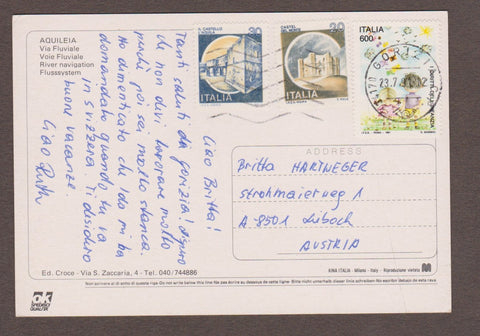 AQUILEIA
Via Fluviale
Voie Fluviale
River navigation
Flusssystem
IL CASTELLO
L'AQUILA
30
ITALIA
CASTEL
DEL MONTE
20
ITALIA
ITALIA
600
GORIZIA
23.7.
Ciao Britta!
Tanti saluti da Gorizia! Spero
che non devi lavorare molto
perché poi sei molto stanca.
Ho dimenticato che Ida mi ha
domandato quando tu va
in Svizzera. Ti desidero
buone vacanze.
Ciao Ruth
ADDRESS
Britta HARTNEGER
Strohmaierweg 1
A-8501 Lieboch
AUSTRIA
Ed. Croce - Via S. Zaccaria, 4 - Tel. 040/744886
KINA ITALIA - Milano - Italy - Riproduzione vietata
ok
SPEDISCI
QUALITÀ
Non scrivere al di sotto di questa riga-Do not write below this line-Ne pas écrire au dessous de cette ligne- Bitte nicht unterhalb dieser linie schreiben-No escribir debajo de esta raya.